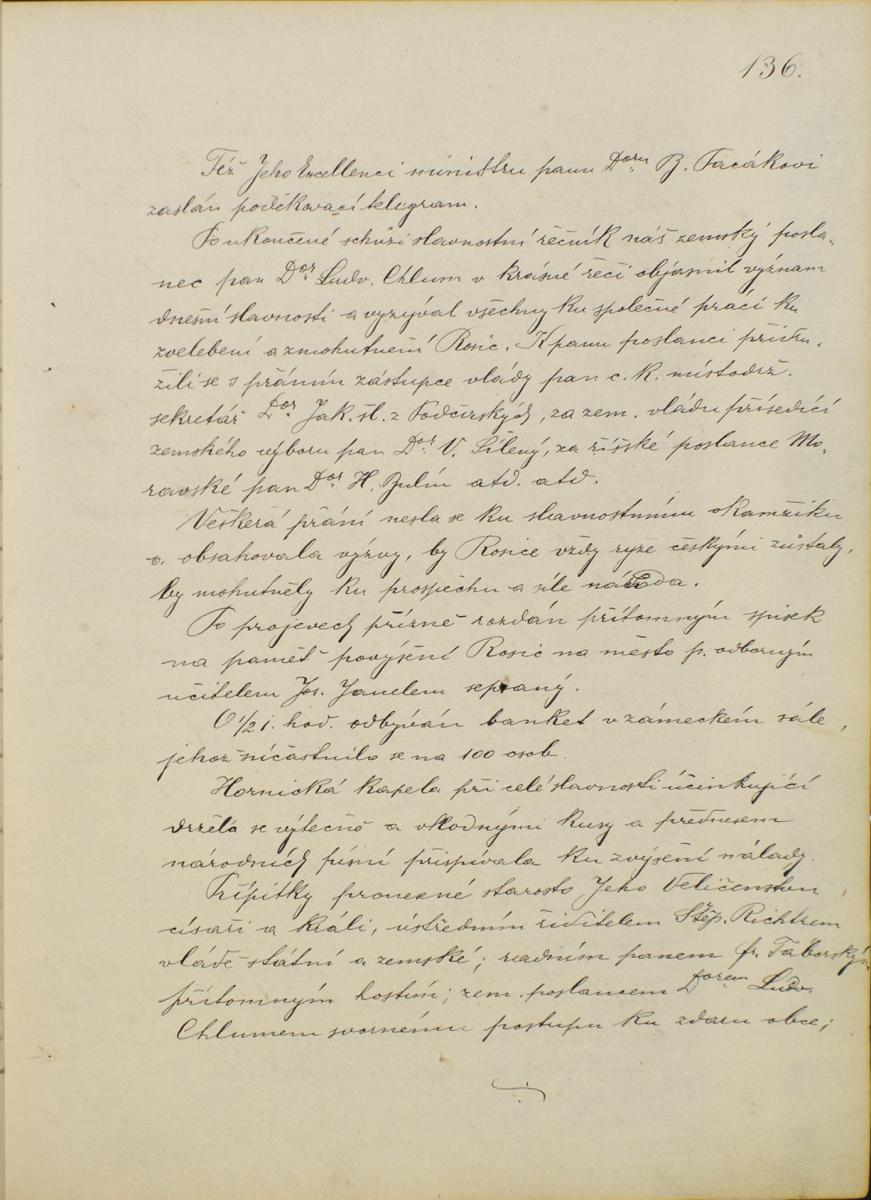 136.
Též Jeho Excellenci ministru panu Doru B. Pacákovi
zaslán poděkovací telegram.
Po ukončené schůzi slavnostní řečník náš zemský posla-
nec pan Dor Ludv. Chlum v krásné řeči objasnil význam
dnešní slavnosti a vyzýval všechny ku společné práci ku
zvelebení a zmohutnění Rosic. K panu poslanci přidru-
žili se s přáním zástupce vlády pan c. k. místodrž.
sekretář Dor Jak. šl. z Podčirských, za zem. vládu přísedící
zemského výboru pan Dor V. Šílený, za říšské poslance Mo-
ravské pan Dor H. Bulín atd. atd.
Veškerá přání nesla se ku slavnostnímu okamžiku
a obsahovala výzvy, by Rosice vždy ryze českými zůstaly,
by mohutněly ku prospěchu a síle národa.
Po projevech přízně rozdán přítomným spisek
na paměť povýšení Rosic na město p. odborným
učitelem Jos. Janelem sepsaný.
O 1/2 1. hod. odbýván banket v zámeckém sále,
jehož súčastnilo se na 100 osob.
Hornická kapela při celé slavnosti účinkující
držela se výtečně a vhodnými kusy a přednesem
národních písní přispívala ku zvýšení nálady.
Přípitky pronesné starosto Jeho Veličenstvu
císaři a králi, ústředním řiditelem Štěp. Richtrem
vládě státní a zemské; radním panem fr. Táborským
přítomným hostům; zem. poslancem Dorem Ludv.
Chlumem svornému postupu ku zdaru obce;